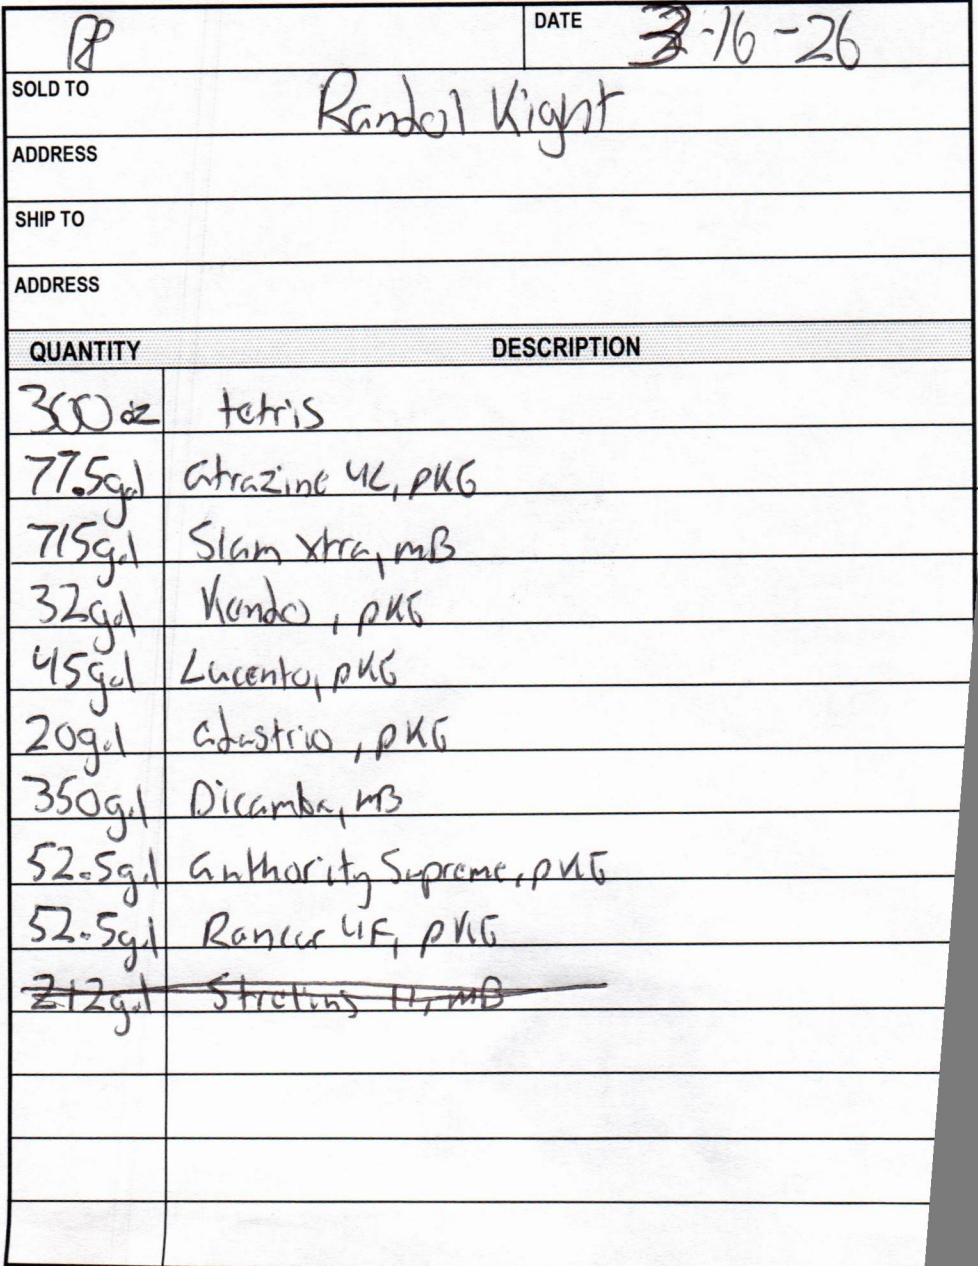 PP
DATE 3-16-26
SOLD TO Randol Kight
ADDRESS
SHIP TO
ADDRESS
QUANTITY DESCRIPTION
300 oz tetris
77.5gal atrazine 4L, PKG
715gal Slam xtra, mB
32gal Kendo, PKG
45gal Lucento, PKG
20gal adastrio, PKG
350gal Dicamba, mB
52.5gal authority Supreme, PKG
52.5gal Rancor 4F, PKG
212gal mB